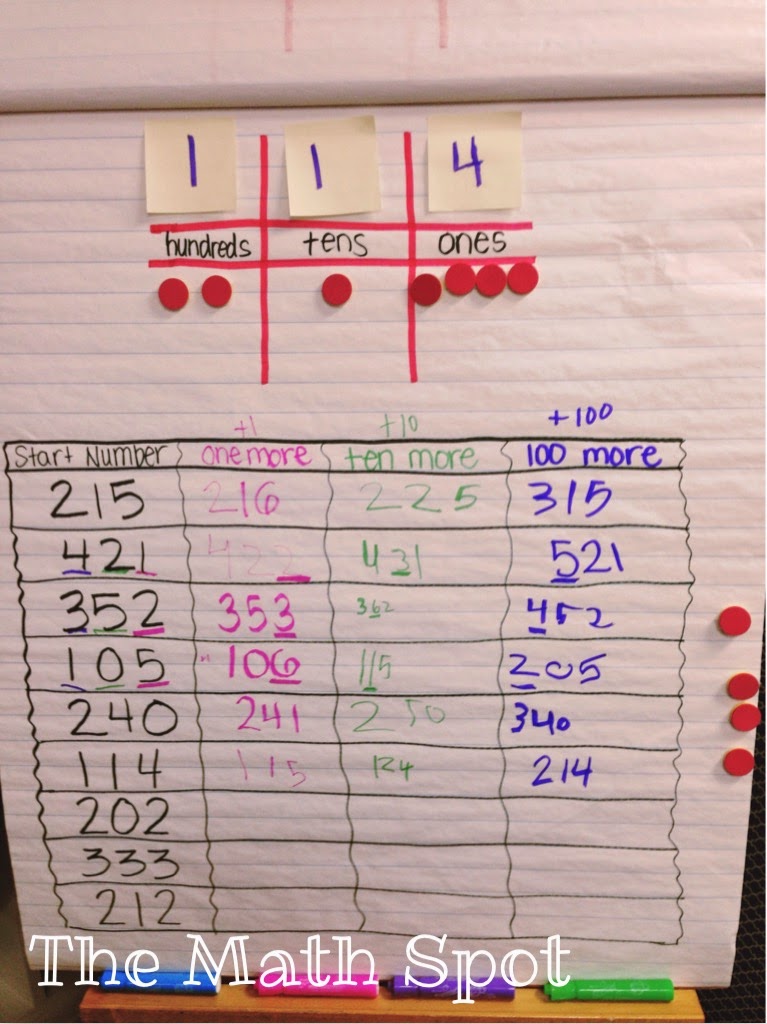 1 1 4
hundreds tens ones
+1 +10 +100
Start Number one more ten more 100 more
215 216 225 315
421 422 431 521
352 353 362 452
105 106 115 205
240 241 250 340
114 115 124 214
202
333
212
The Math Spot